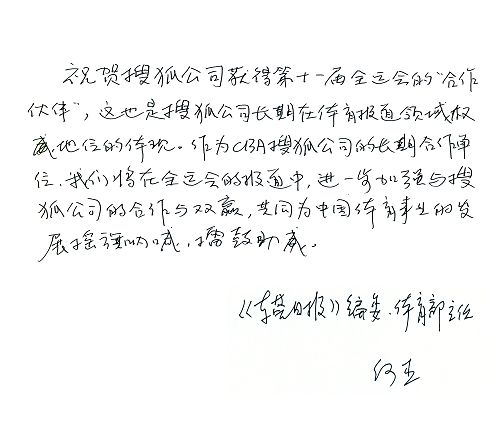 祝贺搜狐公司获得第十一届全运会的“合作
伙伴”，这也是搜狐公司长期在体育报道领域权
威地位的体现。作为CBA搜狐公司的长期合作单
位，我们将在全运会的报道中，进一步加强与搜
狐公司的合作与双赢，共同为中国体育事业的发
展摇旗呐喊，擂鼓助威。
《东莞日报》编委、体育部主任
何玉